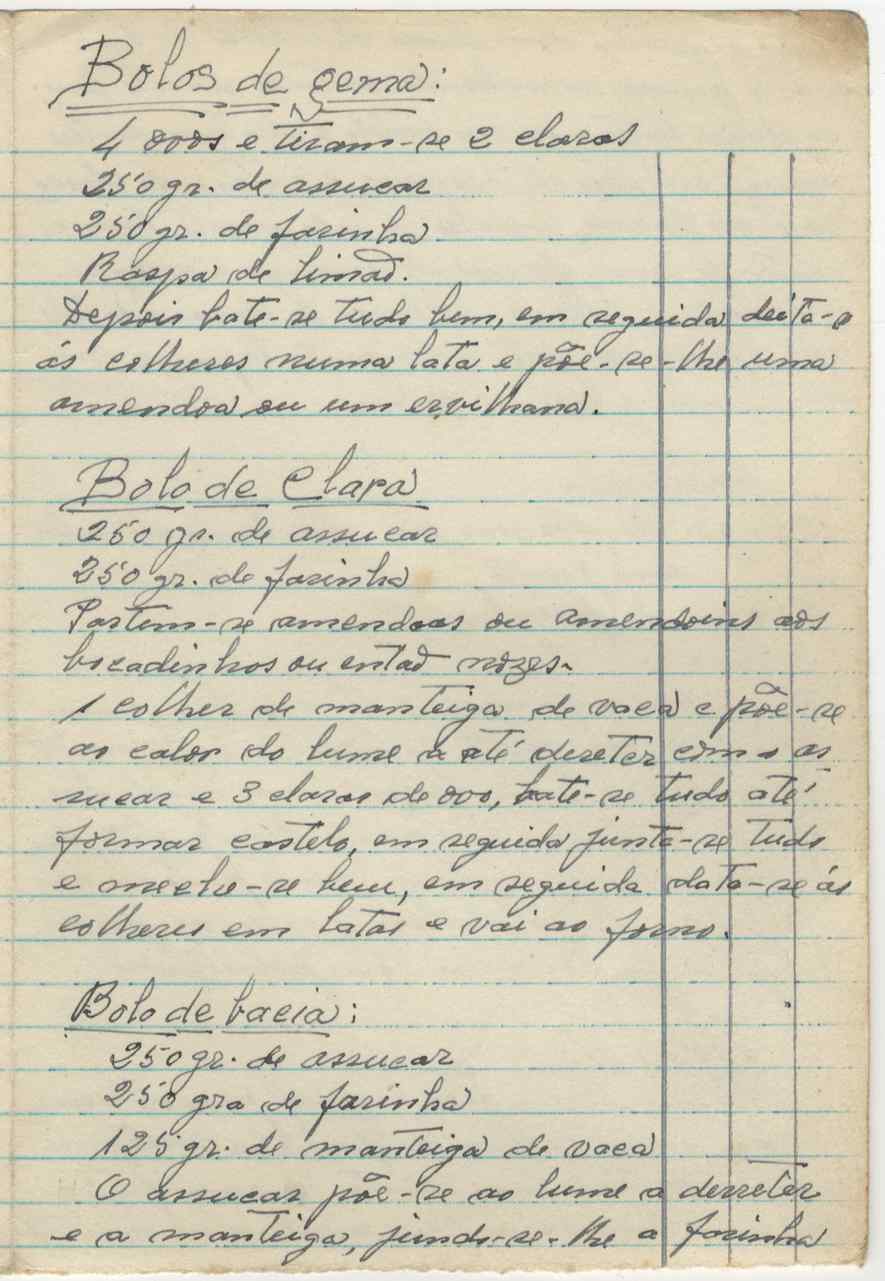 Bolos de gema:
4 ovos e tiram-se 2 claras
250 gr. de assucar
250 gr. de farinha
Raspa de limaõ.
Depois bate-se tudo bem, em seguida deita-o
ás colheres numa lata e põe-se-lhe uma
amendoa ou um ervilhana.
Bolo de Clara
250 gr. de assucar
250 gr. de farinha
Partem-se amendoas ou amendoins aos
bocadinhos ou entaõ nozes.
1 colher de manteiga de vaca e põe-se
ao calor do lume a até dereter com o as
sucar e 3 claras de ovo, bate-se tudo até
formar castelo, em seguida junta-se tudo
e meche-se bem, em seguida data-se ás
colheres em latas e vai ao forno.
Bolo de bacia:
250 gr. de assucar
250 gra de farinha
125 gr. de manteiga de vaca
O assucar põe-se ao lume a derreter
e a manteiga, jundo-se-lhe a farinha